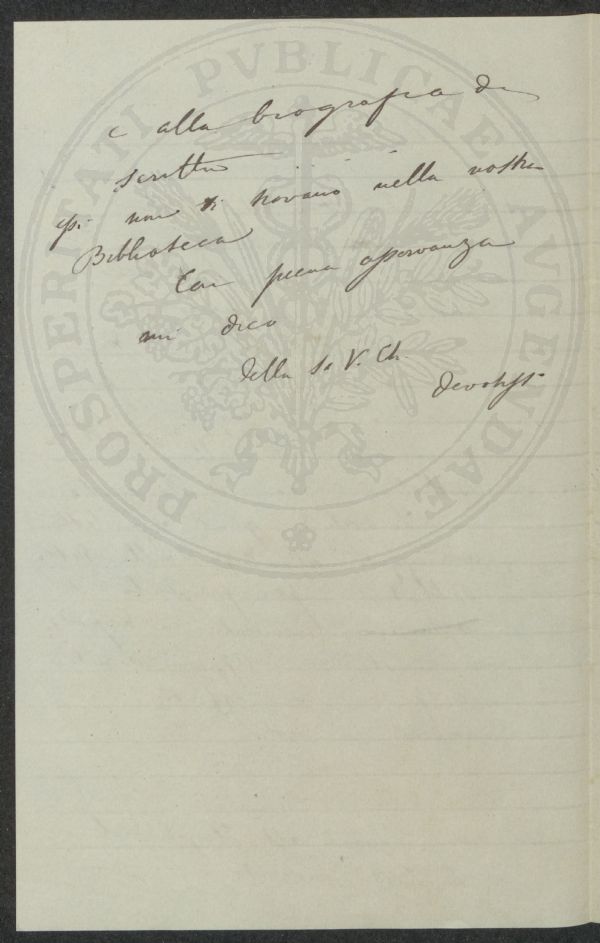 e alla biografia di
scritti
essi non si trovano nella nostra
Biblioteca
Con piena osservanza
mi dico
della S. V. Ch.
devotiss.
PROSPERITATI PVBLICAE AVGENDAE